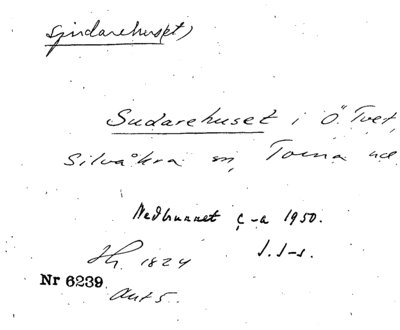 Spindarehus(et)
Sudarehuset i Ö. Tvet,
Silvåkra sn, Torna hd.
Nedbrunnet c-a 1950.
Ih. 1824 J.J-s.
Nr 6239
Ant 5.